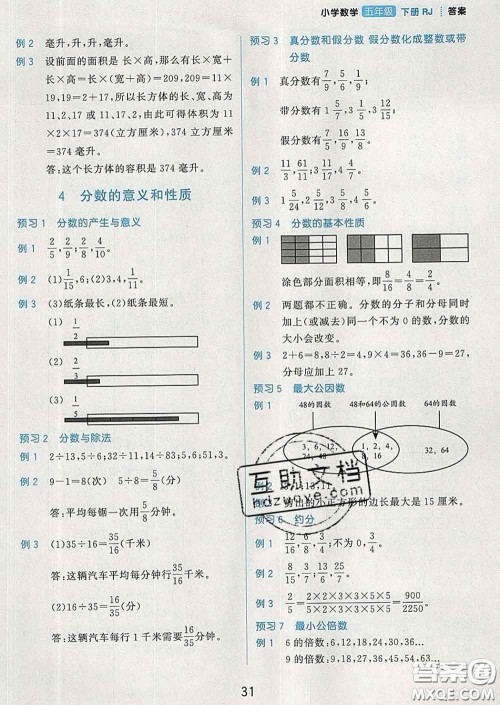 小学数学 五年级 下册 RJ 答案
例 2 毫升,升,升,毫升。
例 3 设前面的面积是 长×高,那么有长×宽+
长×高=长×(宽+高)=209,209=11×
19,19=2+17,所以长方体的长、宽、高为
11、2、17 或 11、17、2,由此可得体积为 11
×2×17=374(立方厘米),374(立方厘米)
=374 毫升。
答:这个长方体的容积是 374 毫升。
4 分数的意义和性质
预习 1 分数的产生与意义
例 1 2/5, 2/9, 2/8, 4/10。
例 2 (1) 1/15,6;(2)3,4, 1/11。
例 3 (3)纸条最长,(2)纸条最短。
(1) 1/2
(2) 1/3
(3) 3/5
预习 2 分数与除法
例 1 2÷13,5÷6,32÷11,14÷83,51÷65。
例 2 9-1=8(次) 5÷8= 5/8(分)
答:平均每锯一次用 5/8 分钟。
例 3 (1)35÷16= 35/16(千米)
答:这辆汽车平均每分钟行 35/16 千米。
(2)16÷35= 16/35(分)
答:这辆汽车每行 1 千米需要 16/35 分钟。
预习 3 真分数和假分数 假分数化成整数或带
分数
例 1 真分数有 7/9, 5/6, 1/7;
带分数有 1 5/7, 3 1/3, 5 1/2;
假分数有 7/5, 16/9, 13/8。
例 2 11/3, 63/11, 11/5, 43/4。
例 3 1 5/24, 2 1/5, 3 3/8, 4 6/7。
预习 4 分数的基本性质
例 1
涂色部分面积相等,即 8/16 = 4/8 = 2/4。
例 2 两题都不正确。分数的分子和分母同时
加上(或减去)同一个不为 0 的数,分数的
大小会改变。
例 3 2+6=8,8÷2=4,9×4=36,36-9=27,
分母应加上 27。
预习 5 最大公因数
例 1 48的因数 48和64的公因数 64的因数
3, 6, 12, 1, 2, 4, 32, 64
24, 48 8, 16
互助文档
hdzuowye.com
例 3 剪出的小正方形的边长最大是 15 厘米。
预习 6 约分
例 1 12/16, 6/8, 3/4;不为 0, 3/4。
例 3 2/5 = 2×2×3×3×5×5 / 5×2×3×3×5×5 = 900/2250。
预习 7 最小公倍数
例 1 6 的倍数:6,12,18,24,30,36,42…
9 的倍数:9,18,27,36,45,54,63…
31
答案圈
MXQE.COM